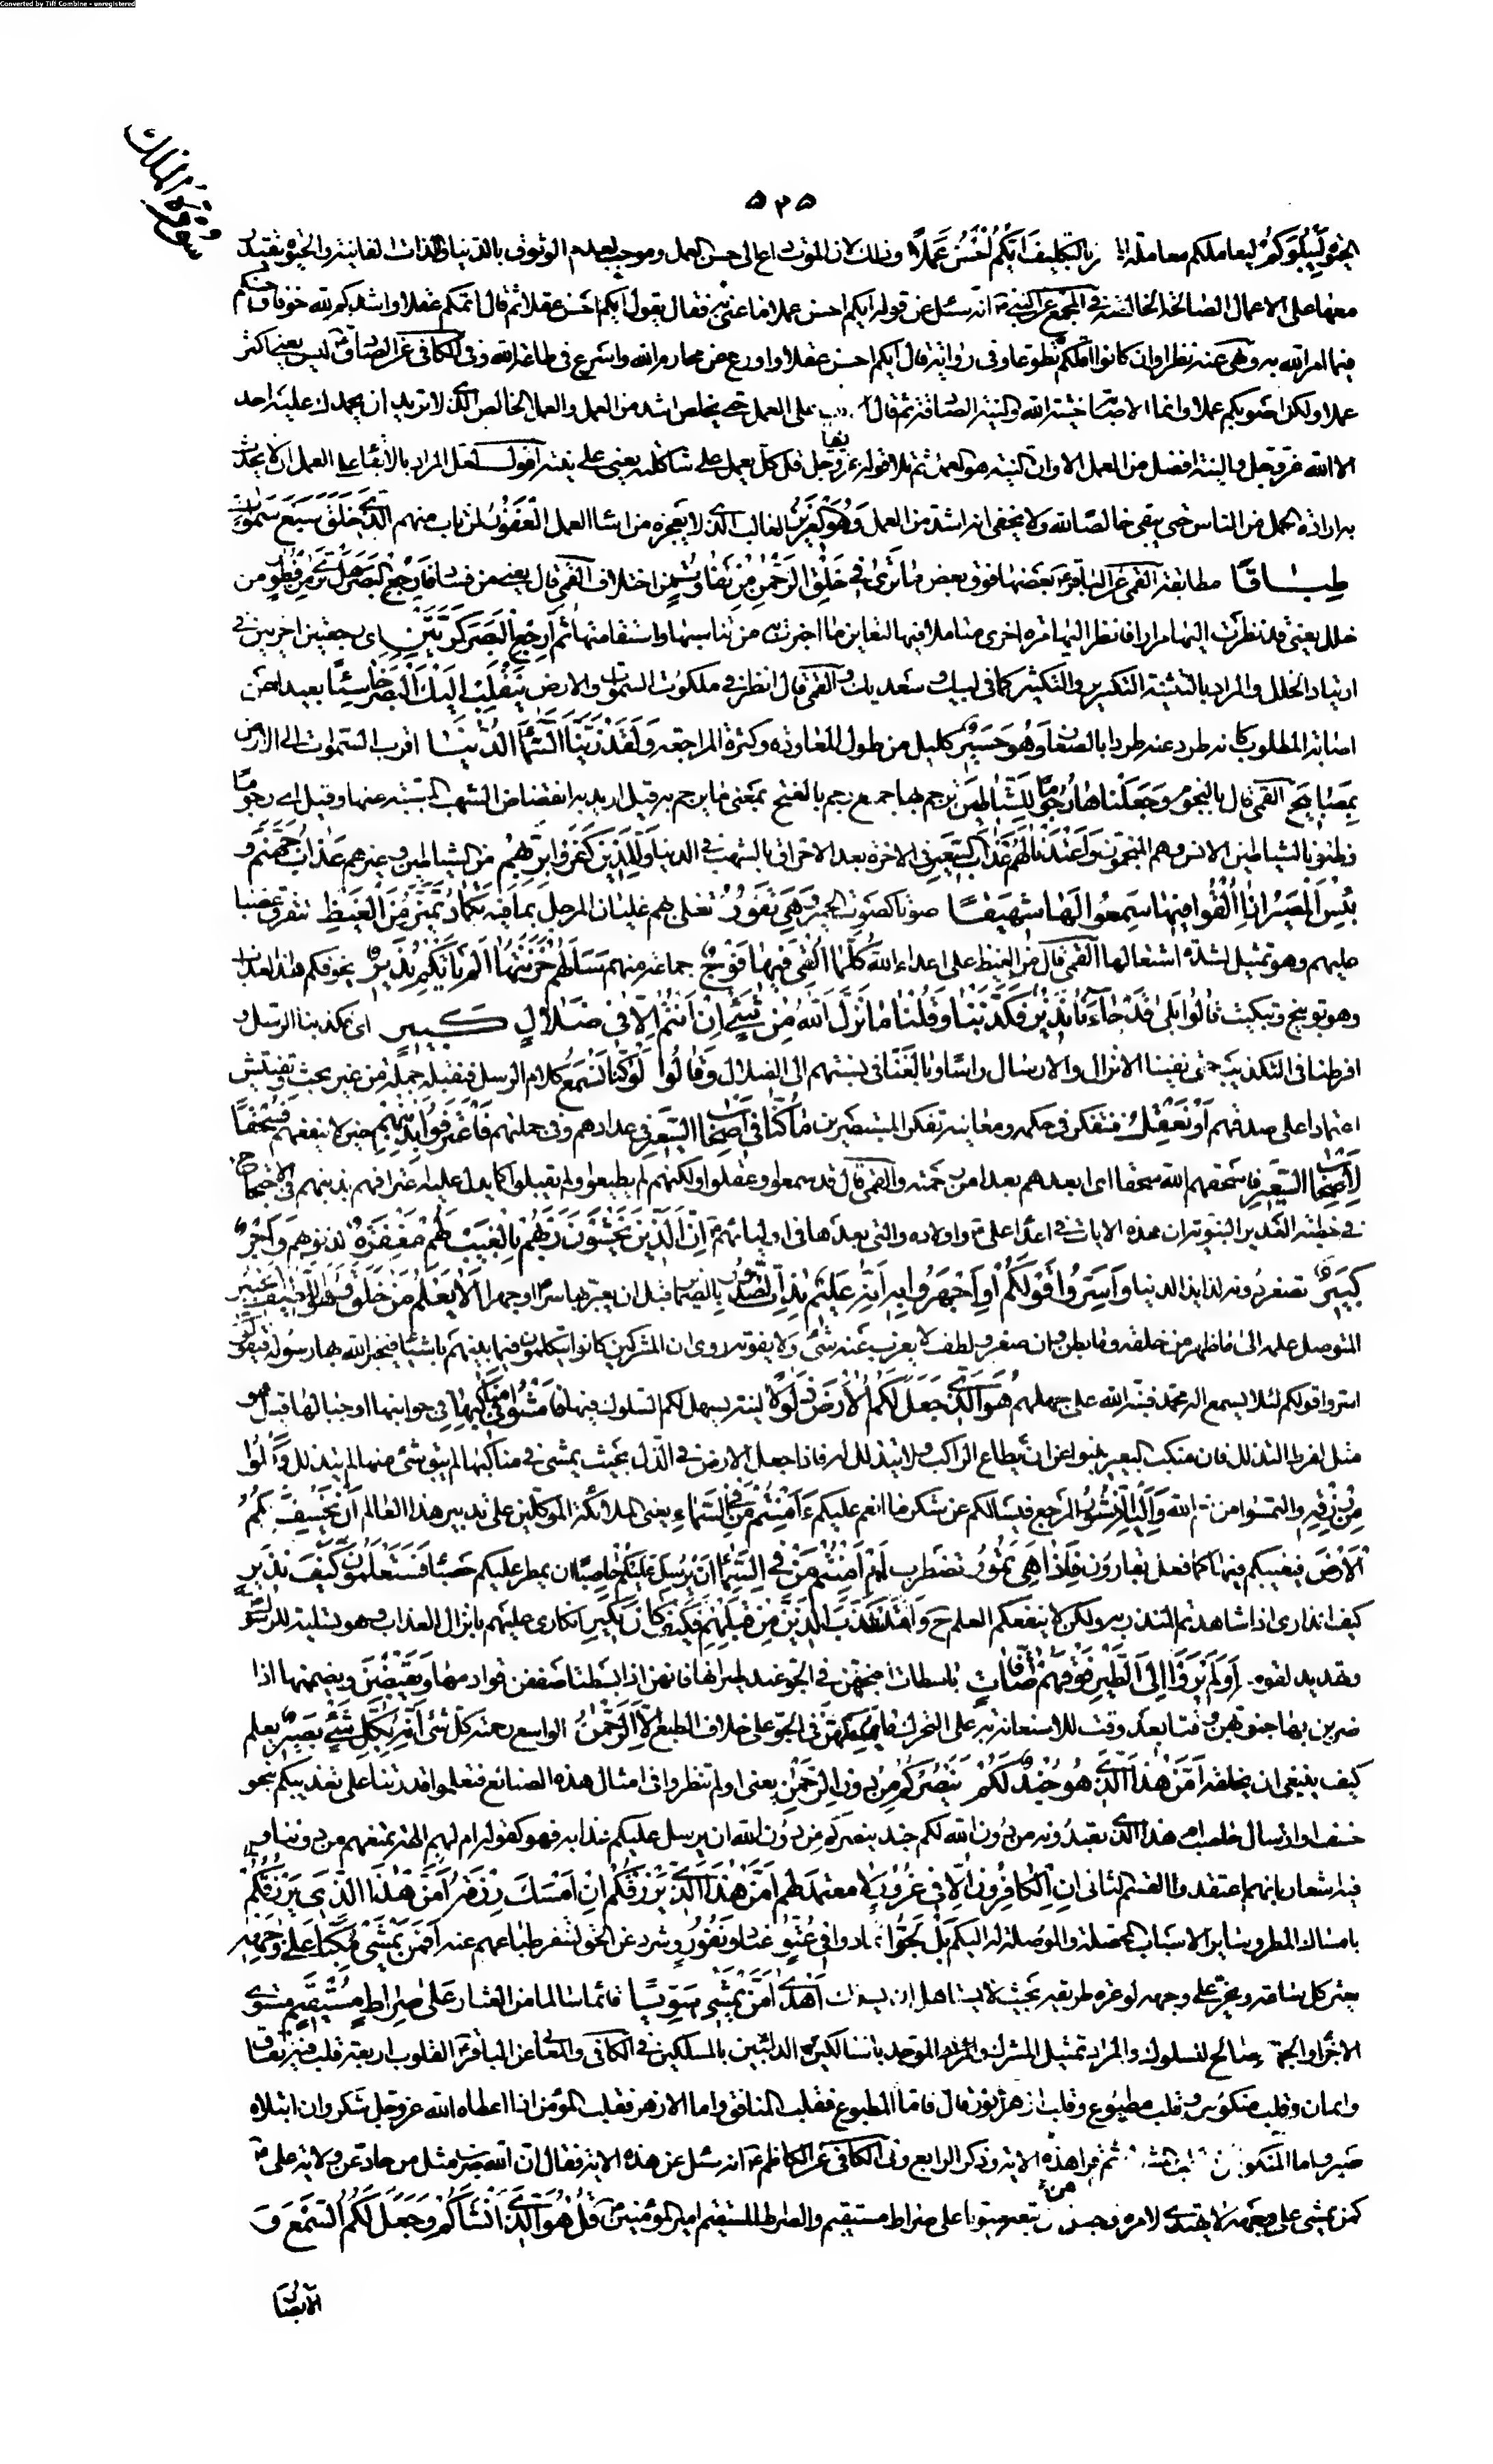 Converted by Tiff Combine - unregistered
سورة الملك
٥٢٥
الحيوة لِيَبْلُوَكُمْ ليعاملكم معاملة بالتكليف اَيُّكُمْ اَحْسَنُ عَمَلًا وذلك لان الموت داع الى حسن العمل وموجب لعدم الوثوق بالدنيا ولذاتها الفانية والحيوة يقتدر
معها على الاعمال الصالحة الخالصة في المجمع عن النبي ص انه سئل عن قوله ايكم احسن عملا ما عنى به فقال يقول ايكم احسن عقلا ثم قال اتمكم عقلا واشدكم لله خوفا واحسنكم
فيما امر الله به ونهى عنه نظرا وان كانوا اقلكم تطوعا وفى رواية قال ايكم احسن عقلا واورع عن محارم الله واسرع في طاعة الله وفى الكافى عن الصادق ع ليس يعنى اكثر
عملا ولكن اصوبكم عملا وانما الاصابة خشية الله والنية الصادقة ثم قال على العمل حتى يخلص اشد من العمل والعمل الخالص الذى لا تريد ان يحمدك عليه احد
الا الله عز وجل والنية افضل من العمل الا وان النية هو العمل ثم تلا قوله عز وجل قل كل يعمل على شاكلته يعنى على نيته اقول لعل المراد بالابقاء على العمل ان لا يحدث
به ارادة الحمل من الناس حتى يبقى خالصا لله ولا يخفى انه اشد من العمل وَهُوَ الْعَزِيزُ الغالب الذى لا يعجزه من اساء العمل الْغَفُورُ لمن تاب منهم الَّذِى خَلَقَ سَبْعَ سَمٰوَاتٍ
طِبَاقًا مطابقة القمى عن الباقر ع بعضها فوق بعض مَا تَرٰى فِى خَلْقِ الرَّحْمٰنِ مِنْ تَفَاوُتٍ من اختلاف القمى قال يعنى من فساد فَارْجِعِ الْبَصَرَ هَلْ تَرٰى مِنْ فُطُورٍ من
خلل يعنى قد نظرت اليها مرارا فانظر اليها مرة اخرى متاملا فيها لتعاين ما اخبرت به من تناسبها واستقامتها ثُمَّ ارْجِعِ الْبَصَرَ كَرَّتَيْنِ اى رجعتين اخريين في
ارتياد الخلل والمراد بالتثنية التكرير والتكثير كما فى لبيك وسعديك والقمى قال انظر في ملكوت السموات والارض يَنْقَلِبْ اِلَيْكَ الْبَصَرُ خَاسِئًا بعيدا عن
اصابة المطلوب كانه طرد عنه طردا بالصغار وَهُوَ حَسِيرٌ كليل من طول المعاودة وكثرة المراجعة وَلَقَدْ زَيَّنَّا السَّمَاءَ الدُّنْيَا اقرب السموات الى الارض
بِمَصَابِيحَ القمى قال بالنجوم وَجَعَلْنَاهَا رُجُومًا لِلشَّيَاطِينِ ترجم بها جمع رجم بالفتح بمعنى ما يرجم به قيل اريد به انقضاض الشهب المسببة عنها وقيل اى رجوما
وظنونا لشياطين الانس وهم المنجمون وَاَعْتَدْنَا لَهُمْ عَذَابَ السَّعِيرِ في الاخرة بعد الاحراق بالشهب في الدنيا وَلِلَّذِينَ كَفَرُوا بِرَبِّهِمْ من الشياطين وغيرهم عَذَابُ جَهَنَّمَ وَ
بِئْسَ الْمَصِيرُ اِذَا اُلْقُوا فِيهَا سَمِعُوا لَهَا شَهِيقًا صوتا كصوت الحمير وَهِىَ تَفُورُ تغلى بهم غليان المرجل بما فيه تَكَادُ تَمَيَّزُ مِنَ الْغَيْظِ تتفرق غضبا
عليهم وهو تمثيل لشدة اشتعالها القمى قال من الغيظ على اعداء الله كُلَّمَا اُلْقِىَ فِيهَا فَوْجٌ جماعة منهم سَاَلَهُمْ خَزَنَتُهَا اَلَمْ يَاْتِكُمْ نَذِيرٌ يخوفكم هذا العذاب
وهو توبيخ وتبكيت قَالُوا بَلٰى قَدْ جَاءَنَا نَذِيرٌ فَكَذَّبْنَا وَقُلْنَا مَا نَزَّلَ اللّٰهُ مِنْ شَىْءٍ اِنْ اَنْتُمْ اِلَّا فِى ضَلَالٍ كَبِيرٍ اى فكذبنا الرسل و
افرطنا فى التكذيب حتى نفينا الانزال والارسال راسا وبالغنا فى نسبتهم الى الضلال وَقَالُوا لَوْ كُنَّا نَسْمَعُ كلام الرسل فنقبله جملة من غير بحث وتفتيش
اعتمادا على صدقهم اَوْ نَعْقِلُ فنتفكر في حكمه ومعانيه تفكر المستبصرين مَا كُنَّا فِى اَصْحَابِ السَّعِيرِ في عدادهم وفى جملتهم فَاعْتَرَفُوا بِذَنْبِهِمْ حين لا ينفعهم فَسُحْقًا
لِاَصْحَابِ السَّعِيرِ فاسحقهم الله سحقا اى ابعدهم بعدا من رحمته والقمى قال قد سمعوا وعقلوا ولكنهم لم يطيعوا ولم يقبلوا كما يدل عليه اعترافهم بذنبهم في الاحتجاج
في خطبة الغدير النبوية ان هذه الايات في اعداء على ع واولاده والتى بعدها فى اوليائهم اِنَّ الَّذِينَ يَخْشَوْنَ رَبَّهُمْ بِالْغَيْبِ لَهُمْ مَغْفِرَةٌ لذنوبهم وَاَجْرٌ
كَبِيرٌ تصغر دونه لذايذ الدنيا وَاَسِرُّوا قَوْلَكُمْ اَوِ اجْهَرُوا بِهِ اِنَّهُ عَلِيمٌ بِذَاتِ الصُّدُورِ بالضماير قبل ان يعبر بها سرا او جهرا اَلَا يَعْلَمُ مَنْ خَلَقَ وَهُوَ اللَّطِيفُ الْخَبِيرُ
المتوصل علمه الى ما ظهر من خلقه وما بطن وان صغر ولطف لا يعزب عنه شئ ولا يفوته روى ان المشركين كانوا يتكلمون فيما بينهم باشياء فيخبر الله بها رسوله فيقولون
اسروا قولكم لئلا يسمع اله محمد فنبه الله على جهلهم هُوَ الَّذِى جَعَلَ لَكُمُ الْاَرْضَ ذَلُولًا لينة يسهل لكم السلوك فيها فَامْشُوا فِى مَنَاكِبِهَا في جوانبها او جبالها قيل هو
مثل لفرط التذلل فان منكب البعير ينبو عن ان يطاه الراكب ولا يتذلل له فاذا جعل الارض في الذل بحيث يمشى في مناكبها لم يبق شئ منها لم يتذلل وَكُلُوا
مِنْ رِزْقِهِ والتمسوا من نعم الله وَاِلَيْهِ النُّشُورُ المرجع فيسالكم عن شكر ما انعم عليكم ءَاَمِنْتُمْ مَنْ فِى السَّمَاءِ يعنى الملائكة الموكلين على تدبير هذا العالم اَنْ يَخْسِفَ بِكُمُ
الْاَرْضَ فيغيبكم فيها كما فعل بقارون فَاِذَا هِىَ تَمُورُ تضطرب اَمْ اَمِنْتُمْ مَنْ فِى السَّمَاءِ اَنْ يُرْسِلَ عَلَيْكُمْ حَاصِبًا ان يمطر عليكم حصباء فَسَتَعْلَمُونَ كَيْفَ نَذِيرِ
كيف انذارى اذا شاهدتم المنذر به ولكن لا ينفعكم العلم ح وَلَقَدْ كَذَّبَ الَّذِينَ مِنْ قَبْلِهِمْ فَكَيْفَ كَانَ نَكِيرِ انكارى عليهم بانزال العذاب وهو تسلية للرسول
وتهديد لقومه اَوَلَمْ يَرَوْا اِلَى الطَّيْرِ فَوْقَهُمْ صَافَّاتٍ باسطات اجنحتهن في الجو عند طيرانها فانهن اذا بسطنها صففن قوادمها وَيَقْبِضْنَ ويضممنها اذا
ضربن بها جنوبهن وقتا بعد وقت للاستعانة به على التحرك مَا يُمْسِكُهُنَّ في الجو على خلاف الطبع اِلَّا الرَّحْمٰنُ الواسع رحمته كل شئ اِنَّهُ بِكُلِّ شَىْءٍ بَصِيرٌ يعلم
كيف ينبغى ان يخلقه اَمَّنْ هٰذَا الَّذِى هُوَ جُنْدٌ لَكُمْ يَنْصُرُكُمْ مِنْ دُونِ الرَّحْمٰنِ يعنى اولم تنظروا فى امثال هذه الصنائع فتعلموا قدرتنا على تعذيبكم بنحو
خسف او ارسال حاصب ام هذا الذى تعبدونه من دون الله لكم جند ينصركم من دون الله ان يرسل عليكم عذابه فهو كقوله ام لهم الهة تمنعهم من دوننا و
فيه اشعار بانهم اعتقدوا القسم الثانى اِنِ الْكَافِرُونَ اِلَّا فِى غُرُورٍ لا معتمد لهم اَمَّنْ هٰذَا الَّذِى يَرْزُقُكُمْ اِنْ اَمْسَكَ رِزْقَهُ اَمَّنْ هٰذَا الَّذِى يَرْزُقُكُمْ
بامساك المطر وساير الاسباب المحصلة والموصلة له اليكم بَلْ لَجُّوا تمادوا فِى عُتُوٍّ عناد وَنُفُورٍ وشرد عن الحق لتنفر طباعهم عنه اَفَمَنْ يَمْشِى مُكِبًّا عَلٰى وَجْهِهِ
يعثر كل ساعة ويخر على وجهه لوعورة طريقه بحيث لا يستاهل ان يسلك اَهْدٰى اَمَّنْ يَمْشِى سَوِيًّا قائما سالما من العثار عَلٰى صِرَاطٍ مُسْتَقِيمٍ مستوى
الاجزاء والجهة صالح للسلوك والمراد تمثيل المشرك والموحد بالسالكين والدينين بالمسلكين في الكافى والمعانى عن الباقر ع القلوب اربعة قلب فيه نفاق
وايمان وقلب منكوس وقلب مطبوع وقلب ازهر انور قال فاما المطبوع فقلب المنافق واما الازهر فقلب المؤمن ان اعطاه الله عز وجل شكر وان ابتلاه
صبر واما المنكوس ثم قرا هذه الاية وذكر الرابع وفى الكافى عن الكاظم ع انه سئل عن هذه الاية فقال ان الله ضرب مثل من حاد عن ولاية على ع
كمن يمشى على وجهه لا يهتدى لامره وجعل من تبعه سويا على صراط مستقيم والصراط المستقيم امير المؤمنين ع قُلْ هُوَ الَّذِى اَنْشَاَكُمْ وَجَعَلَ لَكُمُ السَّمْعَ وَ
الْاَبْصَارَ